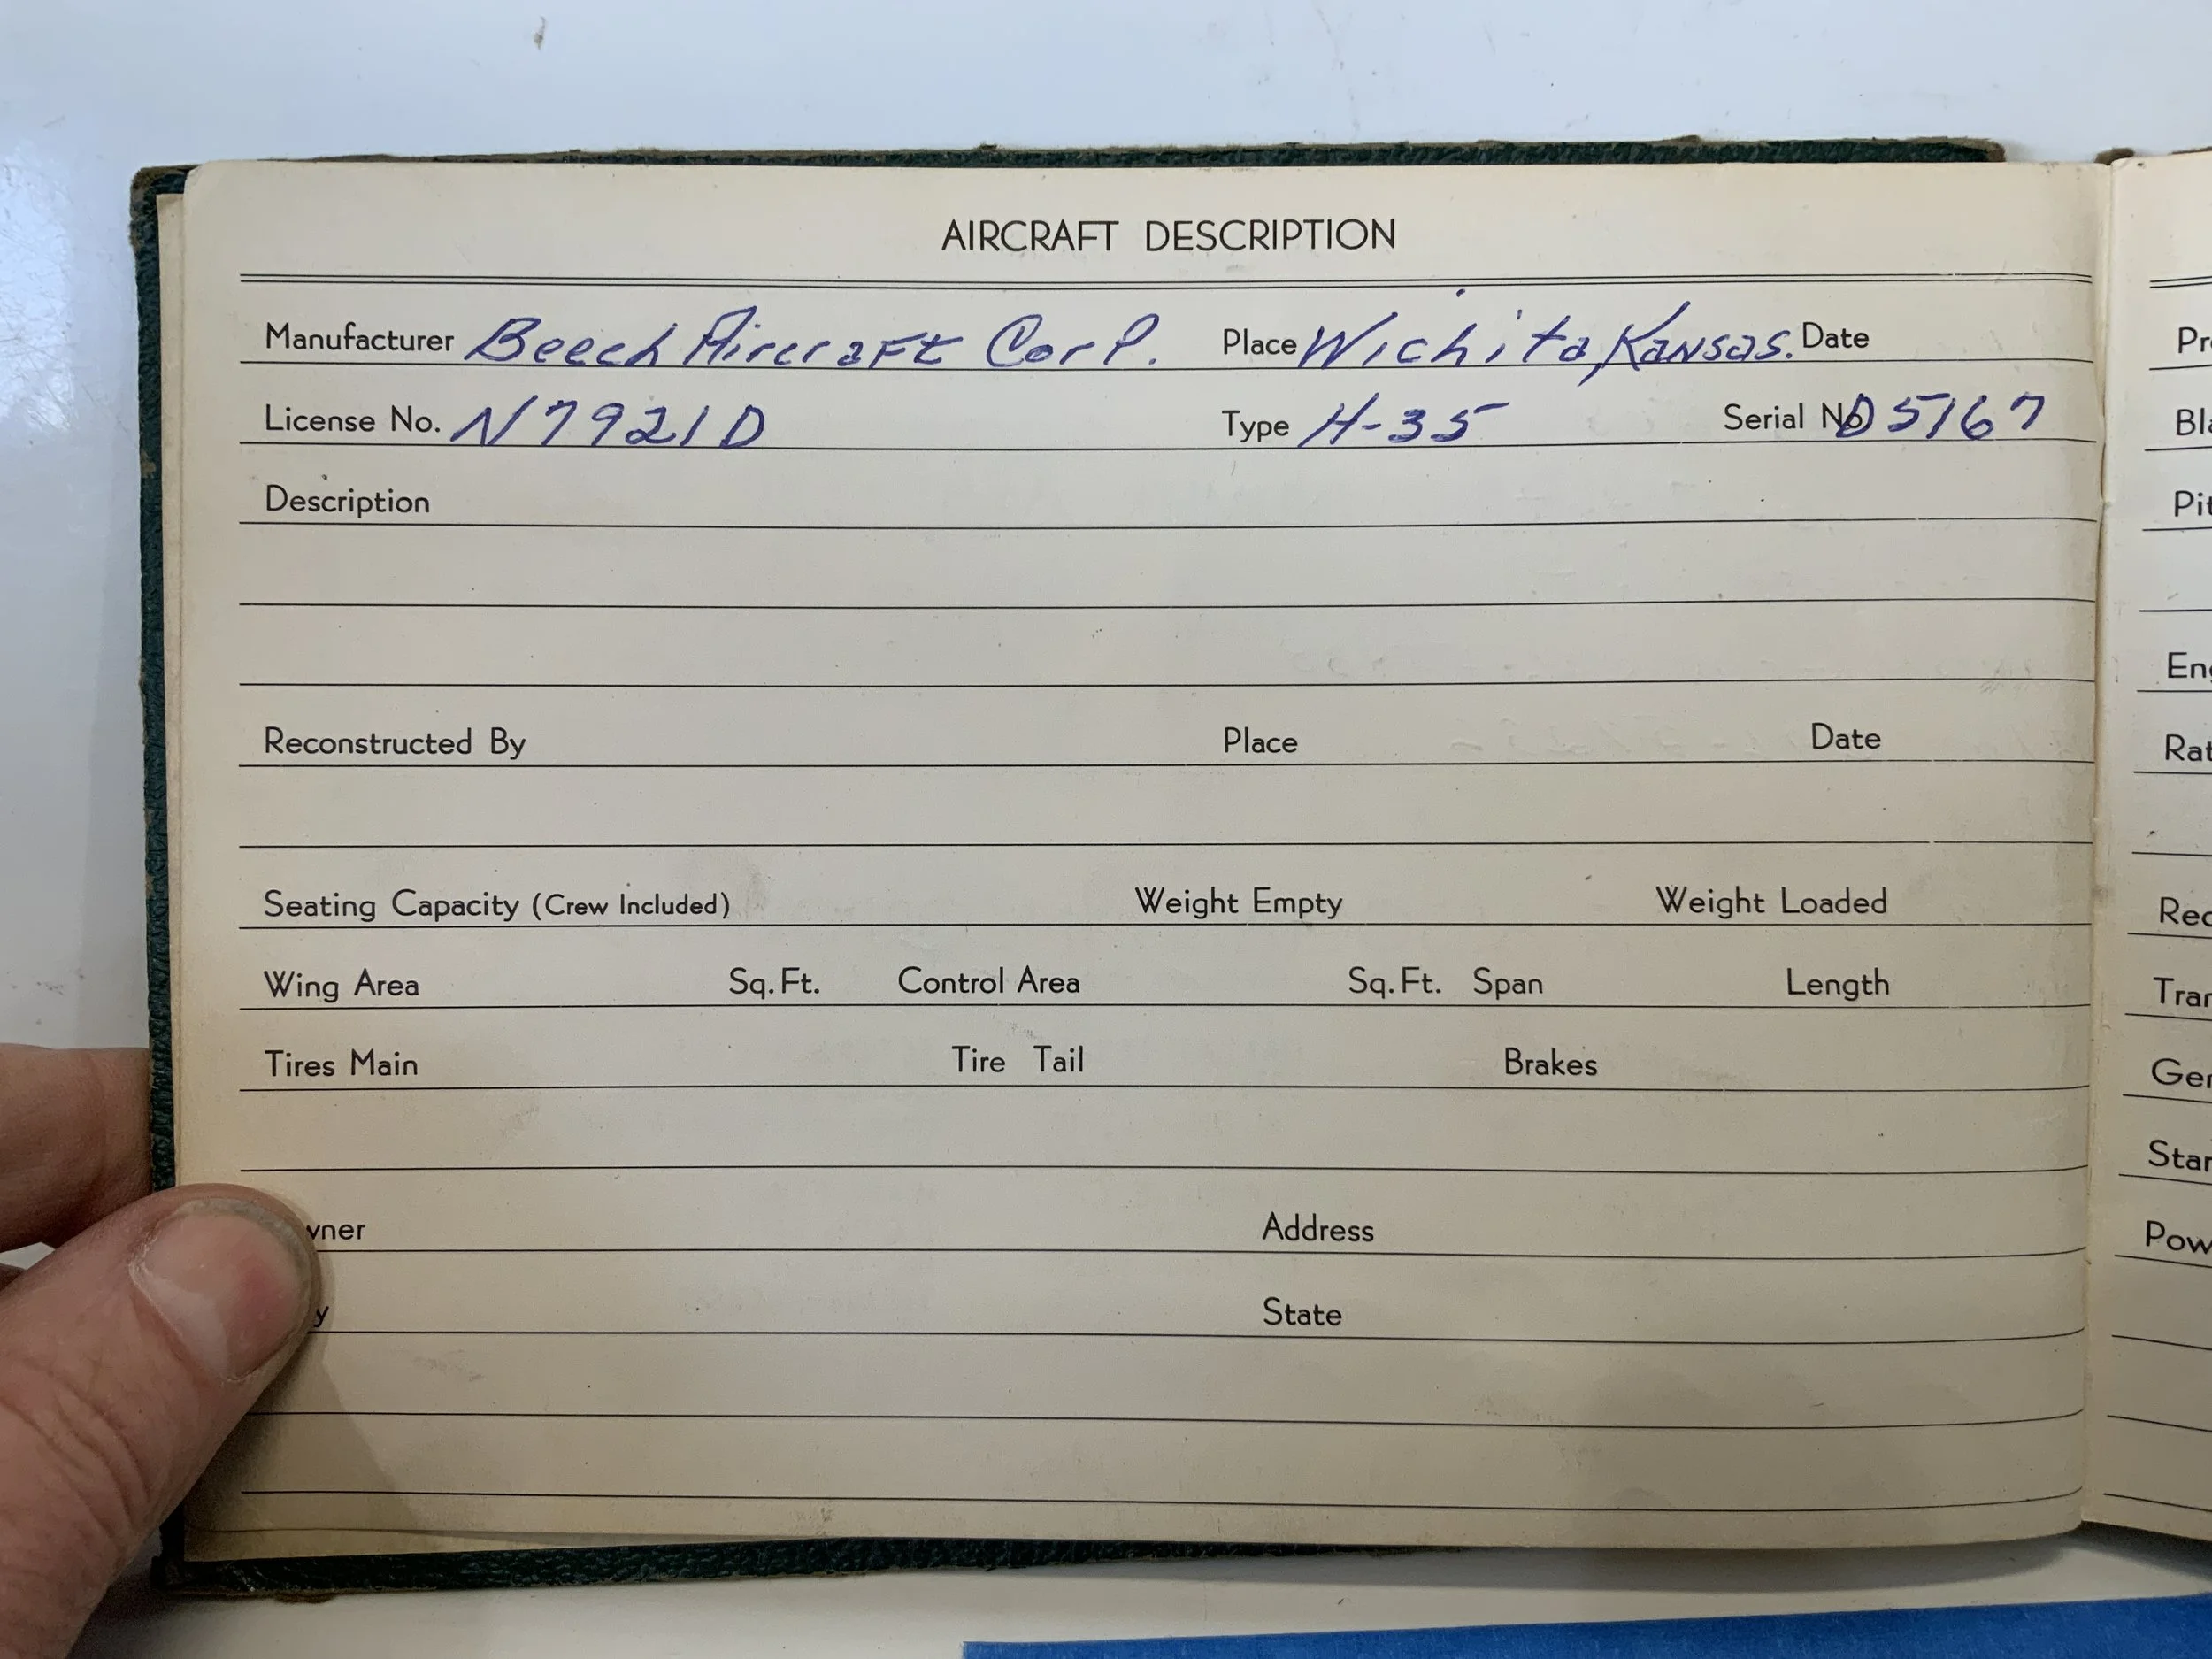 AIRCRAFT DESCRIPTION
Manufacturer Beech Aircraft Corp. Place Wichita, Kansas. Date
License No. N7921D Type H-35 Serial No D5167
Description
Reconstructed By Place Date
Seating Capacity (Crew Included) Weight Empty Weight Loaded
Wing Area Sq. Ft. Control Area Sq. Ft. Span Length
Tires Main Tire Tail Brakes
wner Address
y State
Pr
Bla
Pit
Eng
Rat
Rec
Tran
Gen
Star
Pow